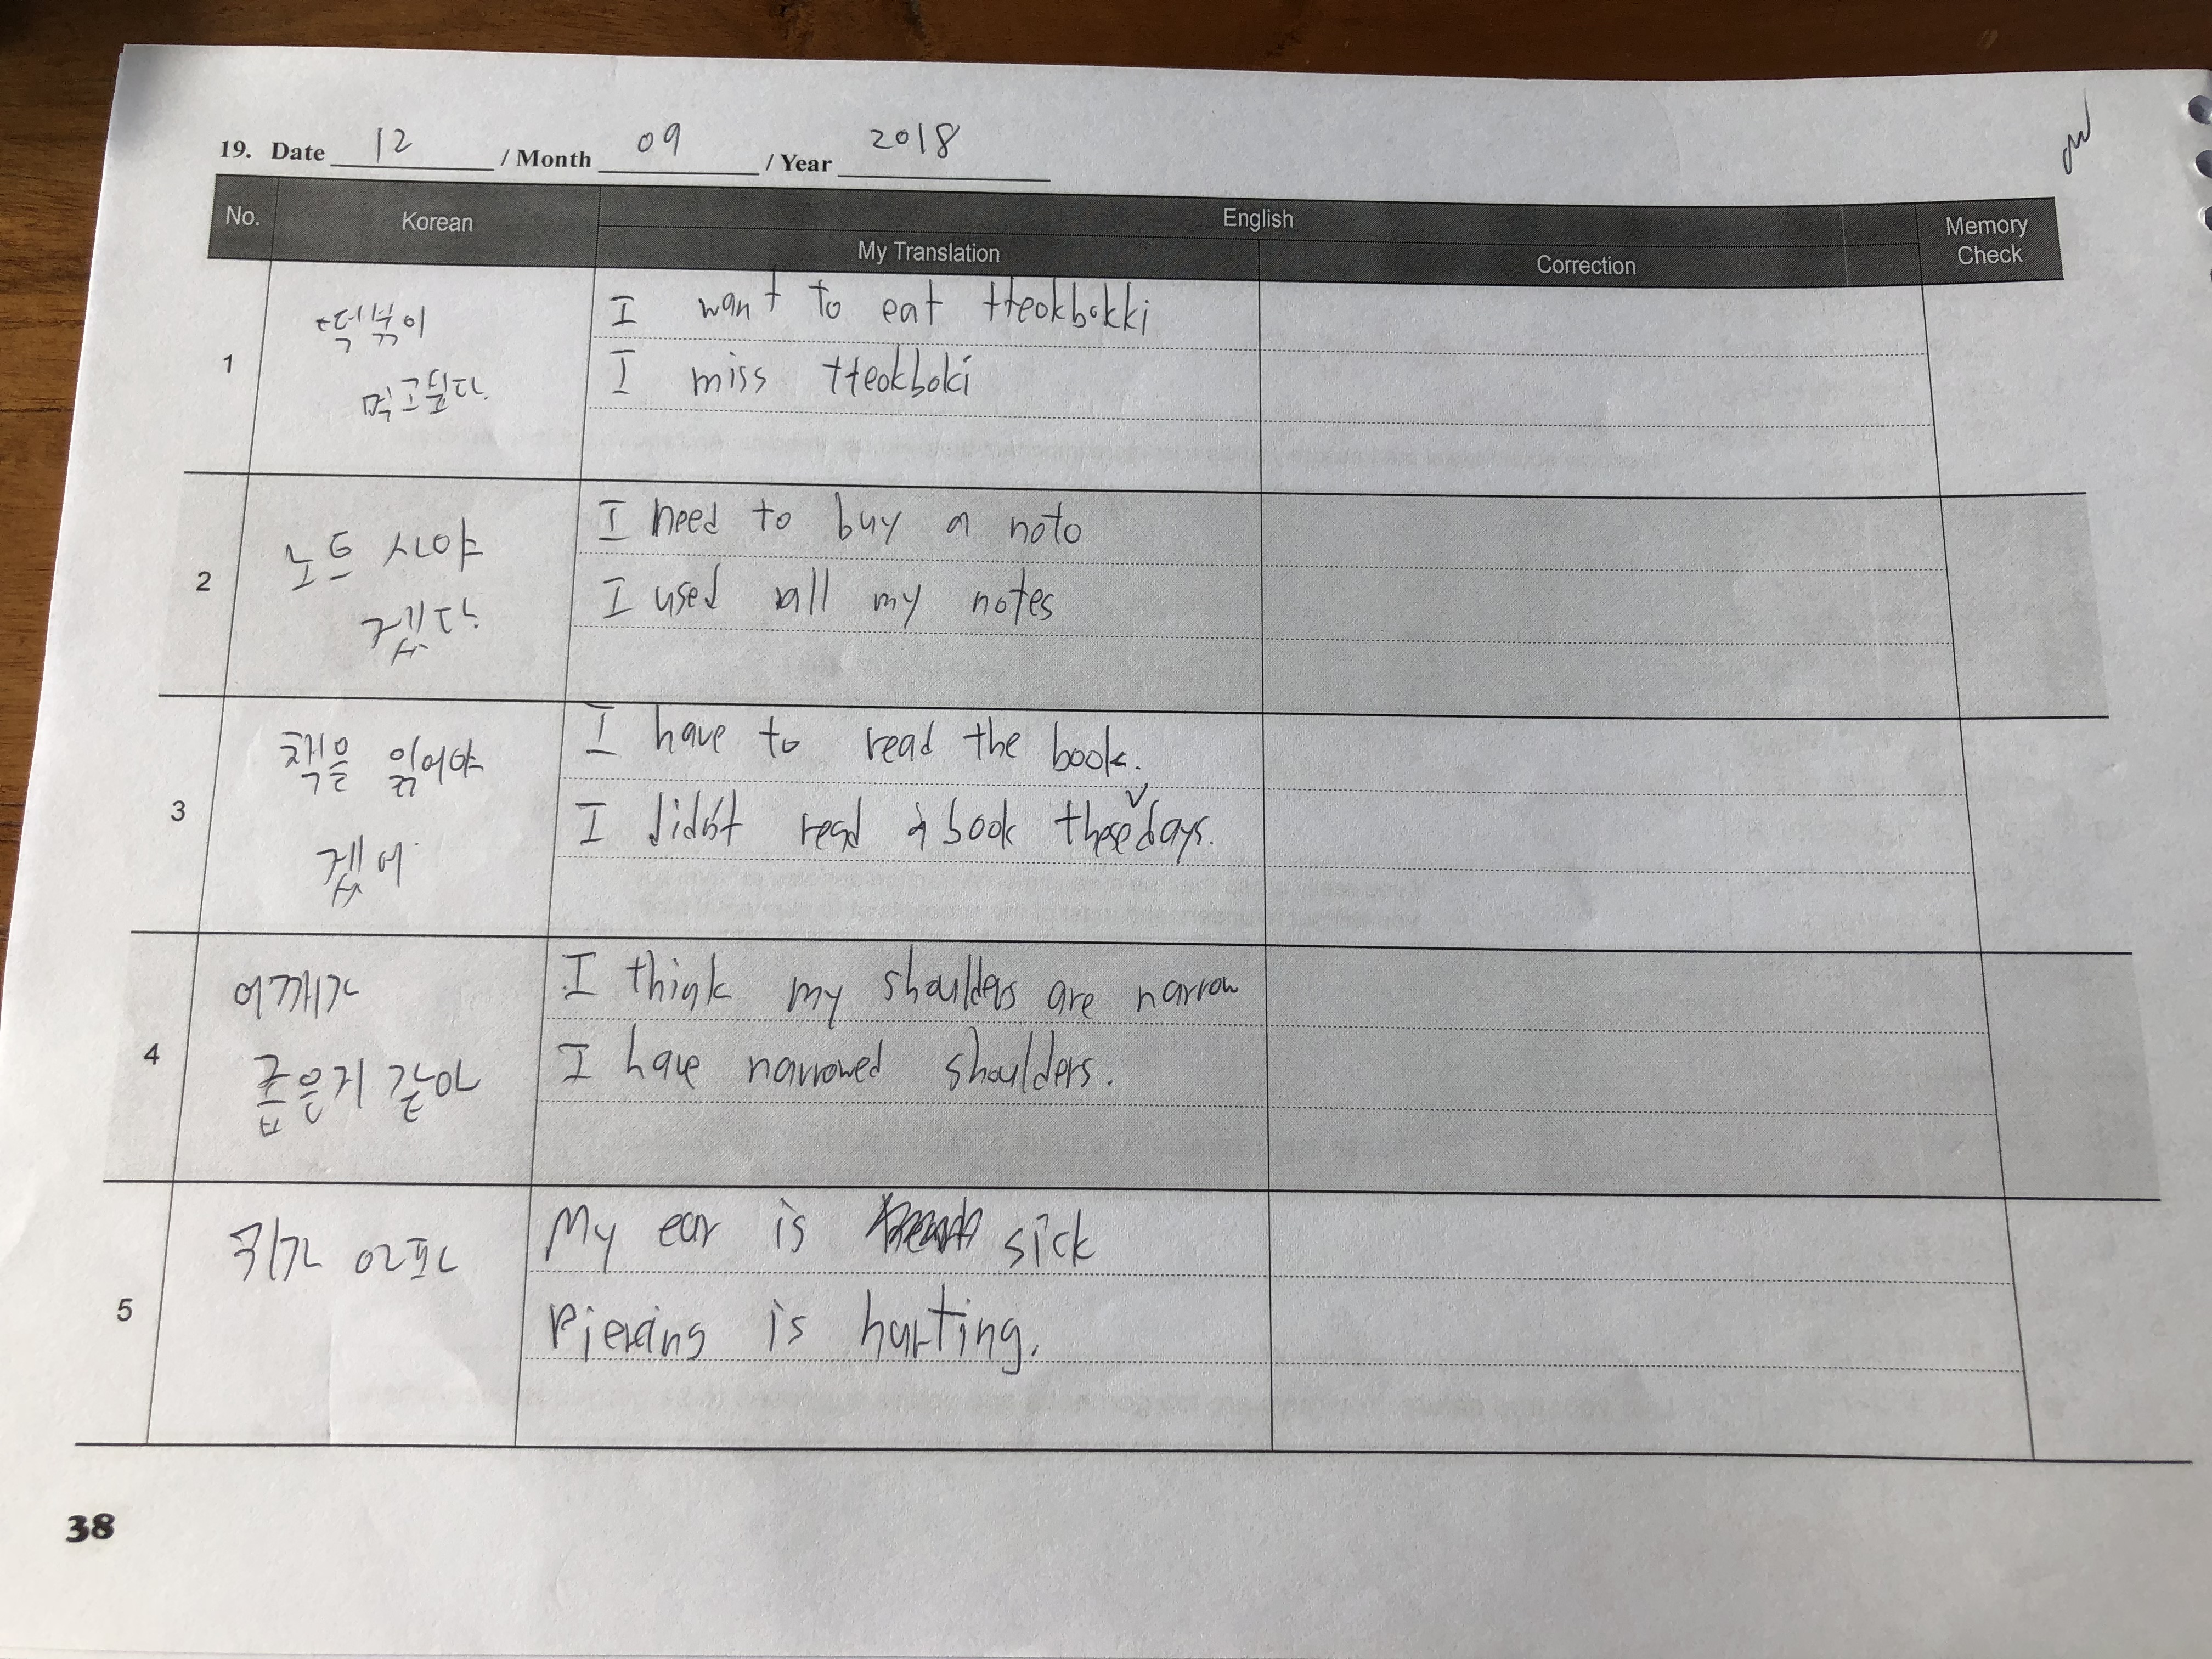 19. Date 12 / Month 09 / Year 2018
No. Korean English Memory Check
My Translation Correction
1
떡볶이
먹고싶다.
I want to eat tteokbokki
I miss tteokboki
2
노트 사야
겠다.
I need to buy a noto
I used all my notes
3
책을 읽어야
겠어.
I have to read the book.
I didn't read a book these days.
4
어깨가
좁은거 같아
I think my shoulders are narrow
I have narrowed shoulders.
5
귀가 아파
My ear is sick
Piercing is hurting.
38